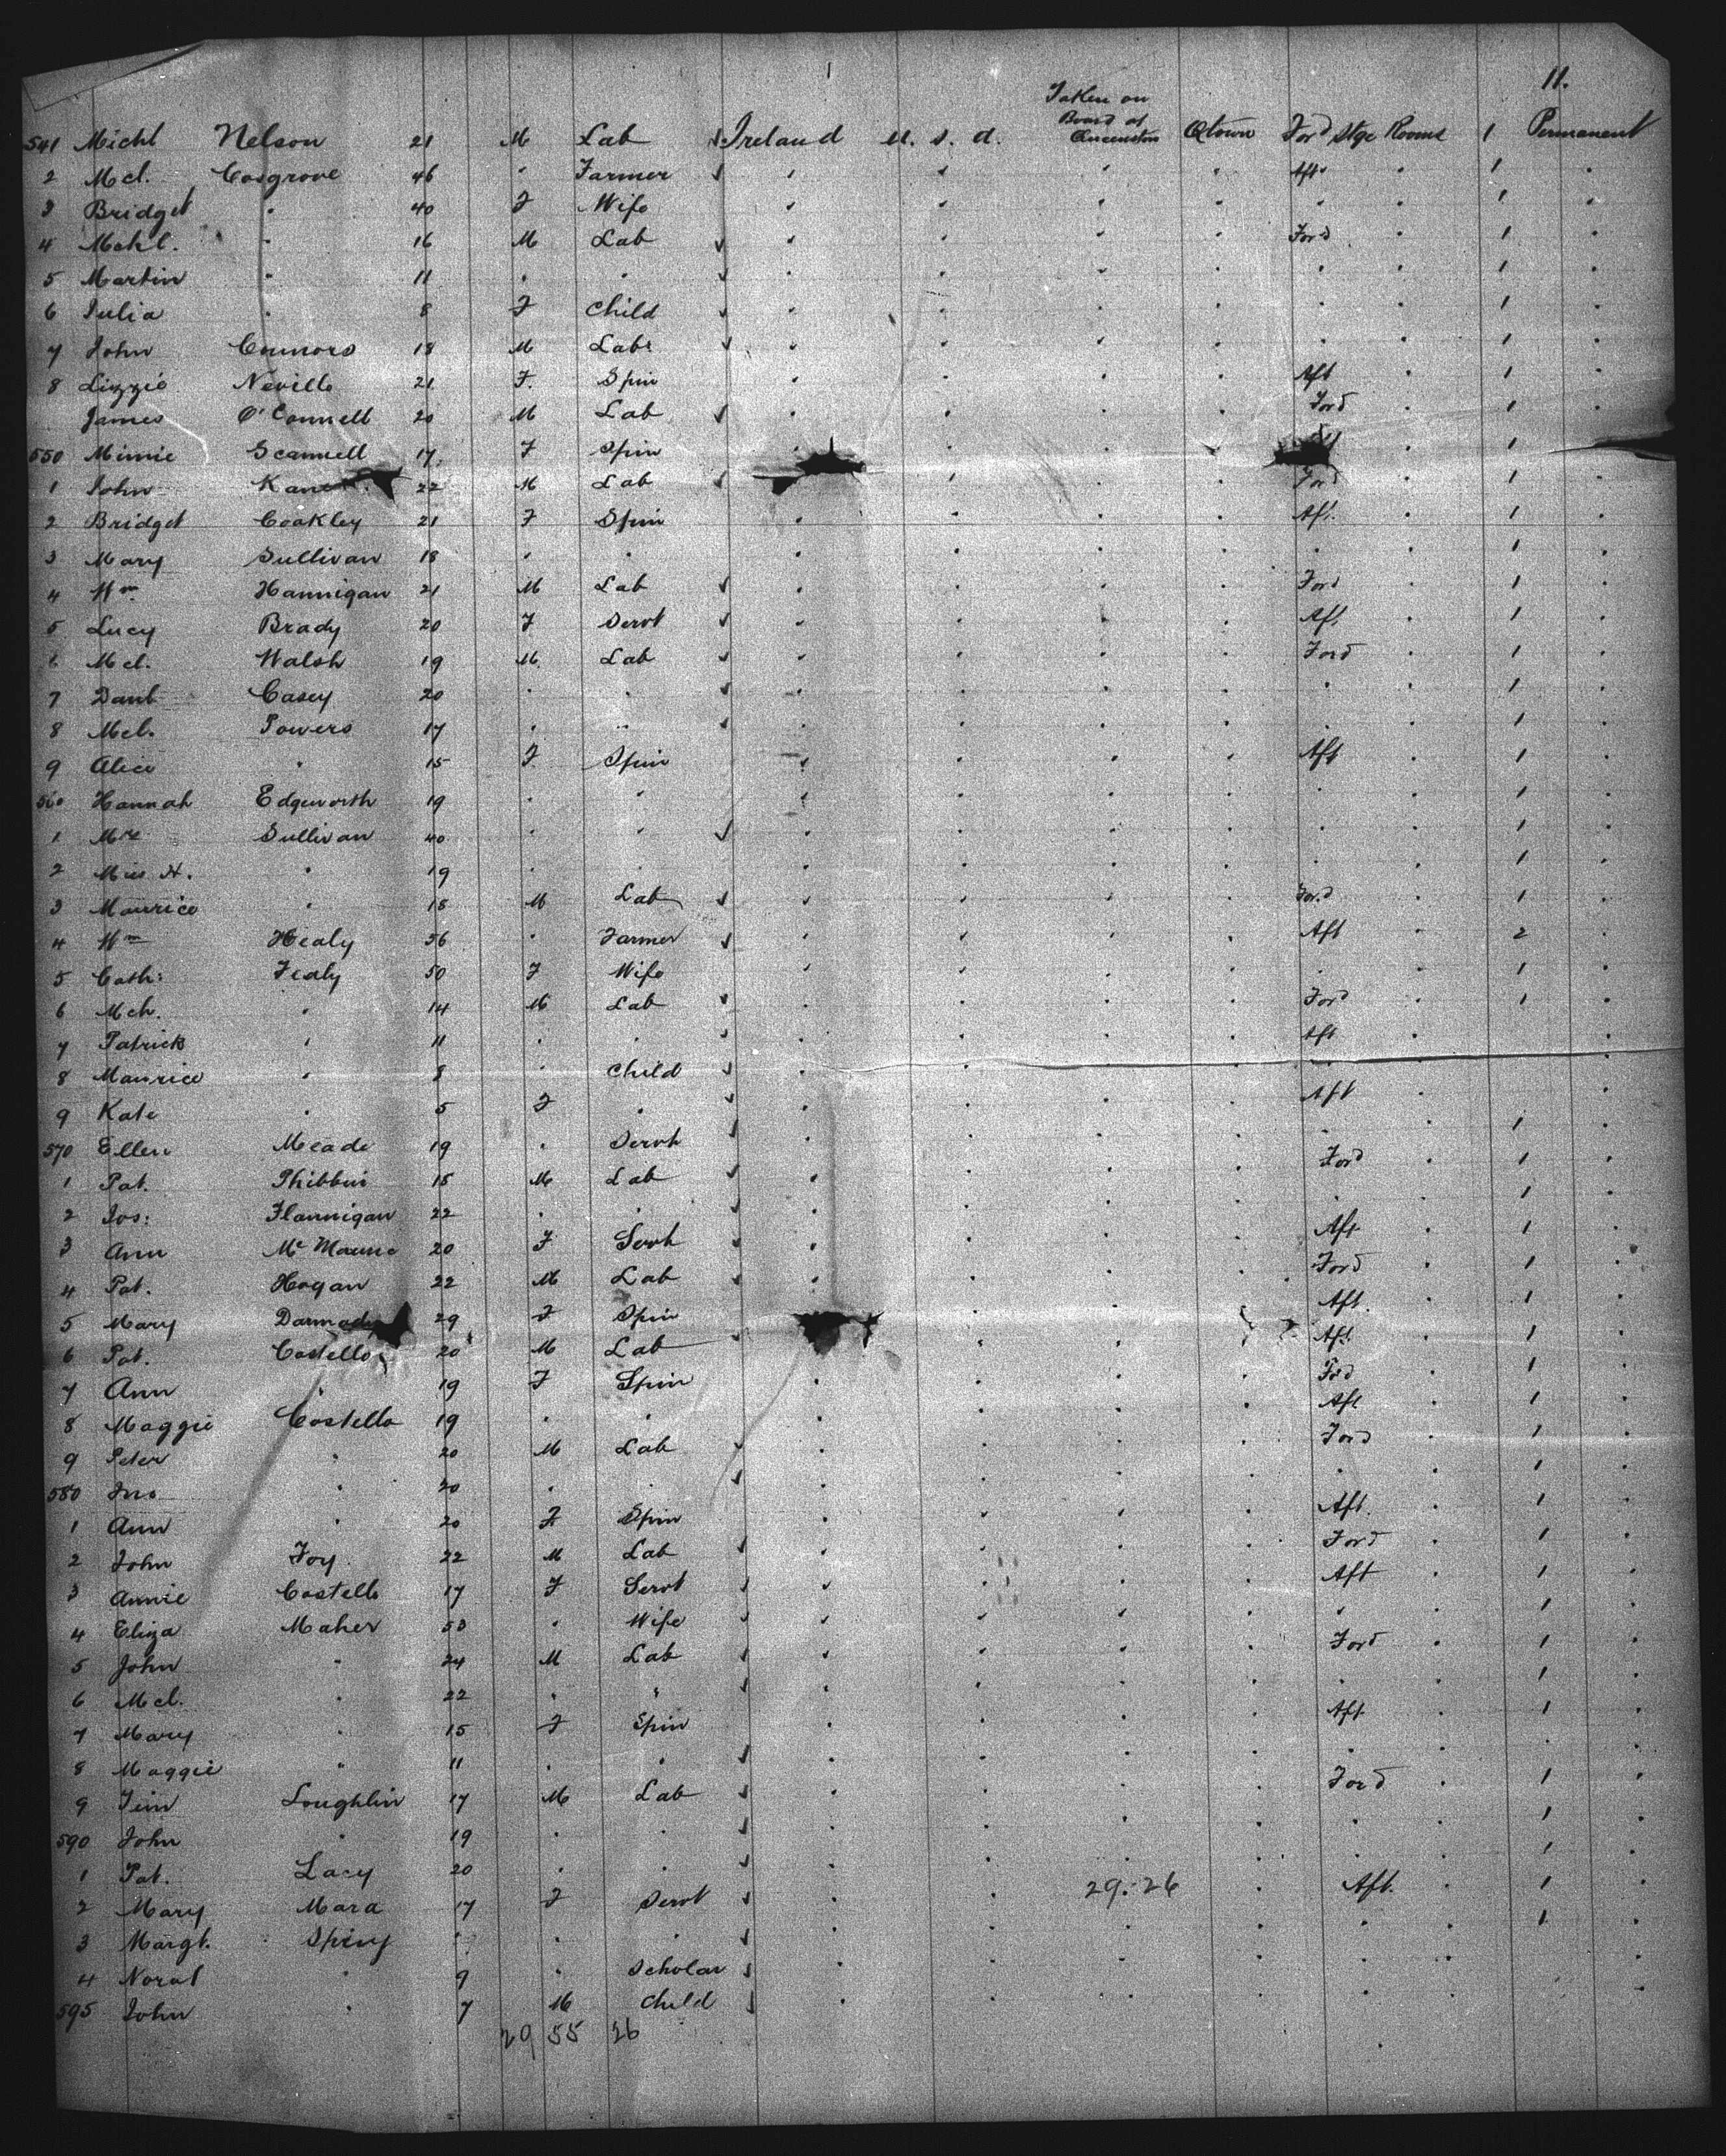 11.
Taken on Board at Queenstown
541 Michl Nelson 21 M Lab Ireland U. S. A. Qtown Ford Stge Rooms 1 Permanent
2 Mcl. Cosgrove 46 " Farmer " " " " Aft " 1 "
3 Bridget " 40 F Wife " " " " " " 1 "
4 Mchl. " 16 M Lab " " " " Ford " 1 "
5 Martin " 11 " " " " " " " " 1 "
6 Julia " 8 F Child " " " " " " 1 "
7 John Connors 18 M Labr " " " " " " 1 "
8 Lizzie Neville 21 F. Spin " " " " Aft " 1 "
James O'Connell 20 M Lab " " " " Ford " 1 "
550 Minnie Scannell 17 F Spin " " " " " 1 "
1 John Kane 22 M Lab " " " Ford " 1 "
2 Bridget Coakley 21 F Spin " " " " Aft " 1 "
3 Mary Sullivan 18 " " " " " " " " 1 "
4 Wm Hannigan 21 M Lab " " " " Ford " 1 "
5 Lucy Brady 20 F Servt " " " " Aft " 1 "
6 Mcl. Walsh 19 M. Lab " " " " Ford " 1 "
7 Danl Casey 20 " " " " " " " " 1 "
8 Mcl. Powers 17 " " " " " " " " 1 "
9 Alice " 15 F Spin " " " " Aft " 1 "
560 Hannah Edgworth 19 " " " " " " " " 1 "
1 Mrs Sullivan 40 " " " " " " " " 1 "
2 Miss H. " 19 " " " " " " " " 1 "
3 Maurice " 18 M Lab " " " " Ford " 1 "
4 Wm Healy 56 " Farmer " " " " Aft " 2 "
5 Cath: Fealy 50 F Wife " " " " " " 1 "
6 Mch. " 14 M Lab " " " " Ford " 1 "
7 Patrick " 11 " " " " " " Aft " "
8 Maurice " 8 " Child " " " " " " "
9 Kate " 5 F " " " " " Aft " "
570 Ellen Meade 19 " Servt " " " " " 1 "
1 Pat. 15 M Lab " " " " Ford " 1 "
2 Jos: Flannigan 22 " " " " " " " " 1 "
3 Ann 20 F Servt " " " " Aft " 1 "
4 Pat. Hogan 22 M Lab " " " " Ford " 1 "
5 Mary 29 F Spin " " " Aft. "
6 Pat. Costello 20 M Lab " " " Aft " 1 "
7 Ann " 19 F Spin " " " " Ford " 1 "
8 Maggie Costello 19 " " " " " " Aft " 1 "
9 Peter " 20 M Lab " " " " Ford " 1 "
580 Jno " 20 " " " " " " " " 1 "
1 Ann " 20 F Spin " " " " Aft. " 1 "
2 John Foy 22 M Lab " " " " Ford " 1 "
3 Annie Costello 17 F Servt " " " " Aft " 1 "
4 Eliza Maher 50 " Wife " " " " " " 1 "
5 John " 24 M Lab " " " " Ford " 1 "
6 Mcl. " 22 " " " " " " " " 1 "
7 Mary " 15 F Spin " " " " Aft " 1 "
8 Maggie " 11 " " " " " " " " "
9 Jim Loughlin 17 M Lab " " " " Ford " 1 "
590 John " 19 " " " " " " " " 1 "
1 Pat. Lacy 20 " " " " " " " 1 "
2 Mary Mara 17 F Servt " " 29.-26 " Aft. " 1 "
3 Margt. " " " " " " " " 1 "
4 Norah " 9 " Scholar " " " " " " "
595 John " 7 M Child " " " " " " "
29 55 26